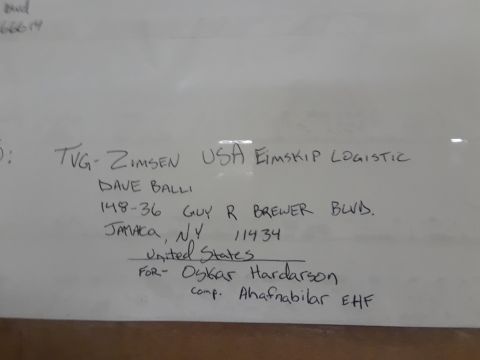 TVG- ZIMSEN USA EIMSKIP LOGISTIC
DAVE BALLI
148-36 GUY R BREWER BLVD.
JAMAICA, NY 11434
United States
FOR- Oskar Hardarson
comp. Ahafnabilar EHF